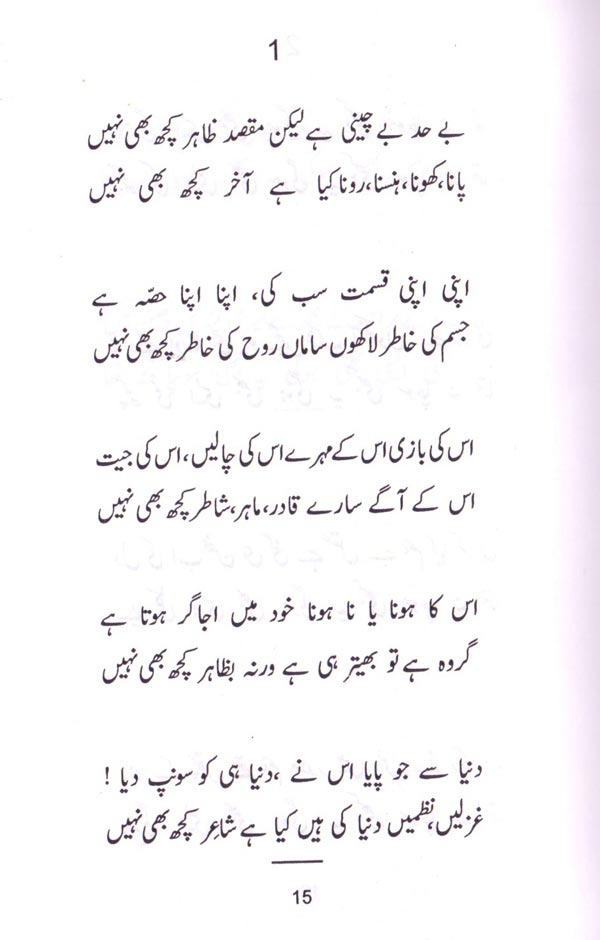 1
بے حد بے چینی ہے لیکن مقصد ظاہر کچھ بھی نہیں
پانا،کھونا،ہنسنا،رونا کیا ہے آخر کچھ بھی نہیں
اپنی اپنی قسمت سب کی، اپنا اپنا حصّہ ہے
جسم کی خاطر لاکھوں ساماں روح کی خاطر کچھ بھی نہیں
اس کی بازی اس کے مہرے اس کی چالیں،اس کی جیت
اس کے آگے سارے قادر،ماہر،شاطر کچھ بھی نہیں
اس کا ہونا یا نا ہونا خود میں اجاگر ہوتا ہے
گر وہ ہے تو بھیتر ہی ہے ورنہ بظاہر کچھ بھی نہیں
دنیا سے جو پایا اس نے ،دنیا ہی کو سونپ دیا !
غزلیں،نظمیں دنیا کی ہیں کیا ہے شاعِر کچھ بھی نہیں
15